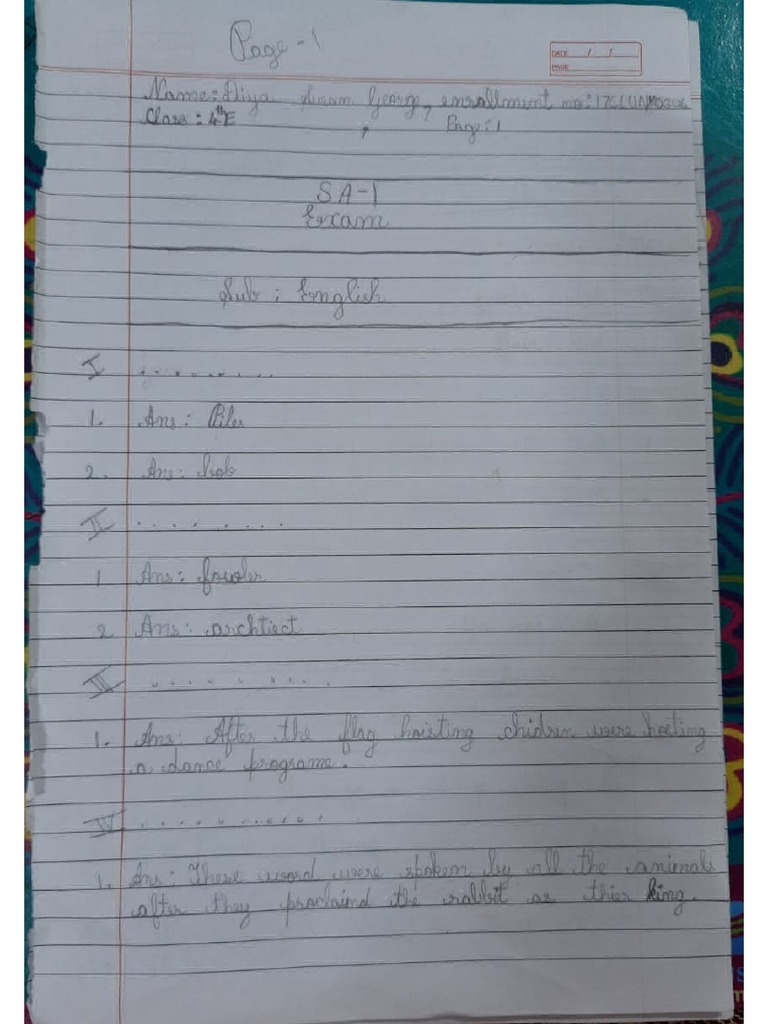 Page - 1
DATE / /
PAGE
Name: Diya Susan George, enrollment no:
Class : 4th E , Page: 1
SA-1
Exam
Sub : English
I ..........
1. Ans: Piles
2. Ans:
II ........
1 Ans: fowler
2 Ans: archtiect
III .........
1. Ans: After the flag hoisting chidren were hosting
a dance programe.
IV ...........
1. Ans: These word were spoken by all the animals
after they proclaimd the rabbit as thier king.